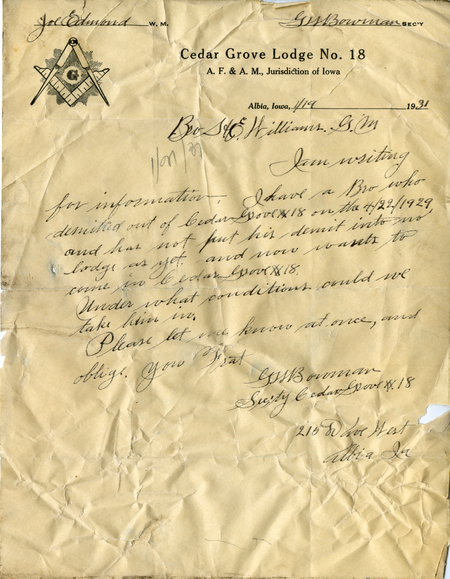 Joe Edmond W. M.
GW Bowman SEC'Y
G
Cedar Grove Lodge No. 18
A. F. & A. M., Jurisdiction of Iowa
Albia, Iowa, 1/19 1931
Bro S Williams G M
I am writing
for information. I have a Bro who
demited out of Cedar Grove # 18 on the 4/22/1929
and has not put his demit into no
lodge as yet and now wants to
come in Cedar Grove # 18.
Under what conditions could we
take him in.
Please let me know at once, and
oblige. You Frat
GW Bowman
Secty Cedar Grove # 18
215 Ave West
Albia Ia